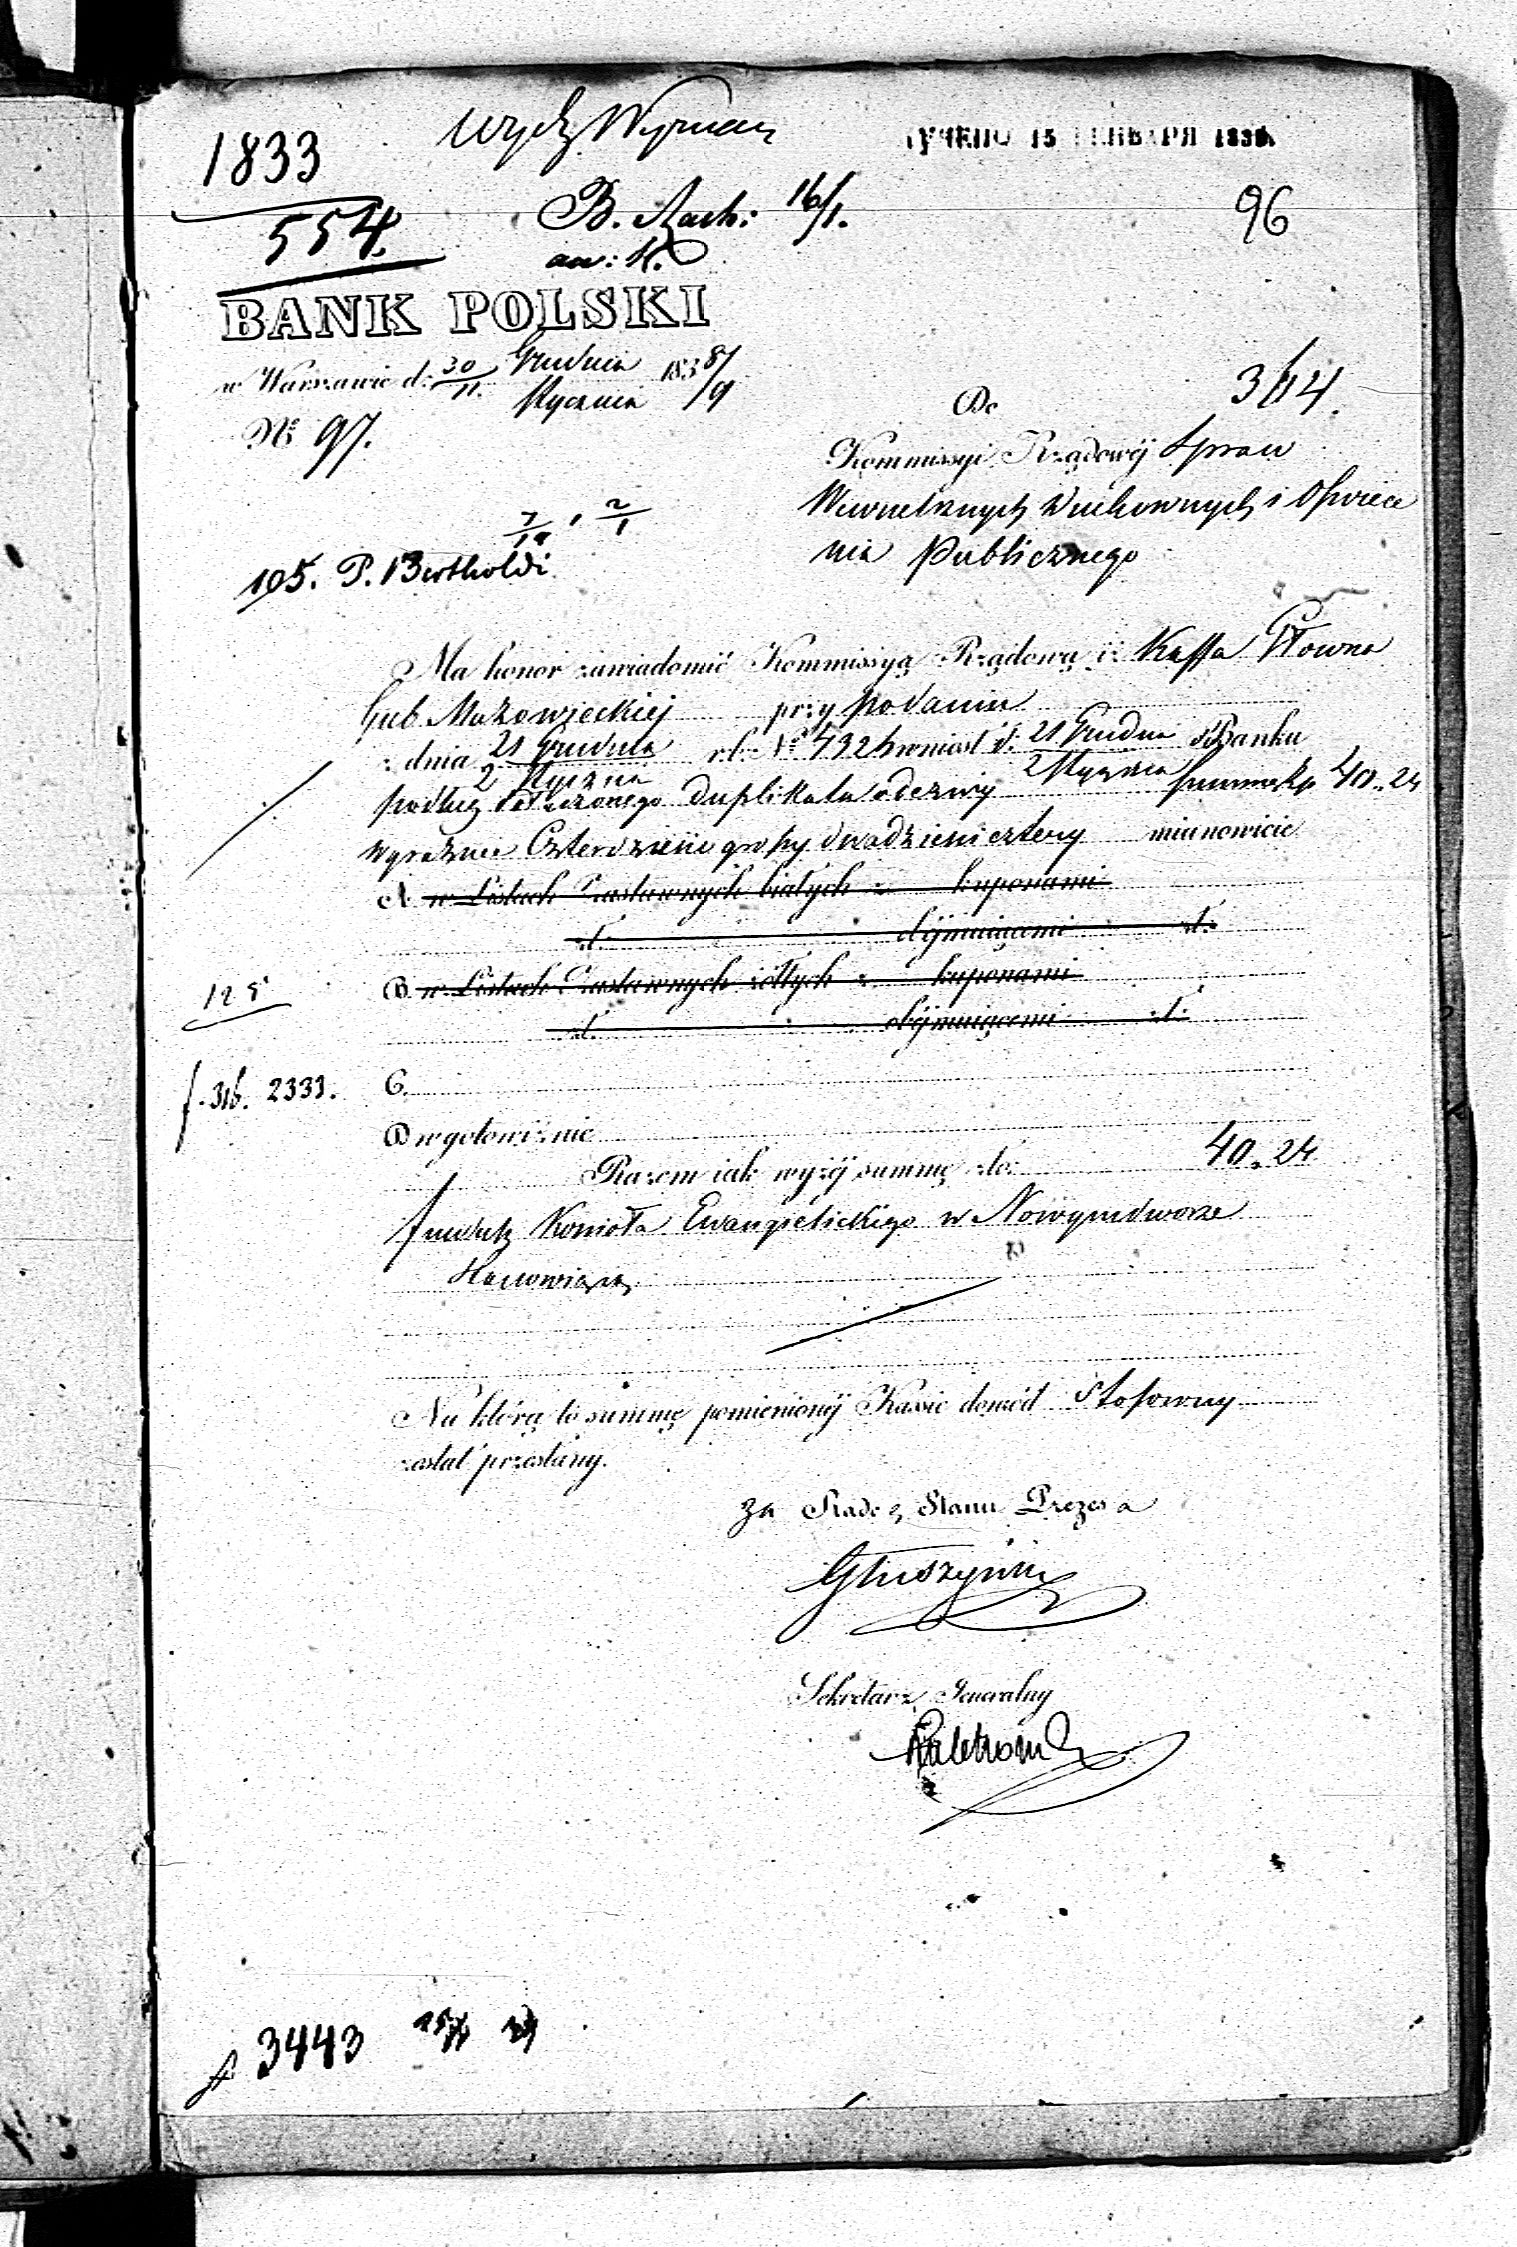 1833
554.
B. Rach: 16/1.
96
BANK POLSKI
w Warszawie d: 30/11. Grudnia/Stycznia 1838/9
№ 97.
364.
Do
Kommissyi Rządowéj Spraw
Wewnetrznych Duchownych i Oświece
nia Publicznego
7/19 , 2/1
105. P. Bertholdi
Ma honor zawiadomić Kommissyą Rządową iż Kassa Główna
Gub. Mazowieckiej przy podaniu
z dnia 21 Grudnia/2 Stycznia r.b. № 4392 wniosła d: 21 Grudnia/2 Stycznia do Banku
podług dołączonego duplikatu odezwy summę złp 40 „ 24
wyraźnie Czterdzieści groszy dwadzieścia cztery mianowicie
A w Listach Zastawnych białych z kuponami
zł. obéjmującemi zł:
B. w Listach Zastawnych żółtych z kuponami
zł. obéjmującemi zł:
f. 316. 2333.
C.
D w gotowiźnie
Razem iak wyżéj summę zło: 40 „ 24
fundusz Kościoła Ewangielickiego w Nowymdworze
stanowiącą
Na którą to summę pomienionéj Kassie dowód stosowny
został przesłany.
za Radcę Stanu Prezesa
Sekretarz Jeneralny
3443